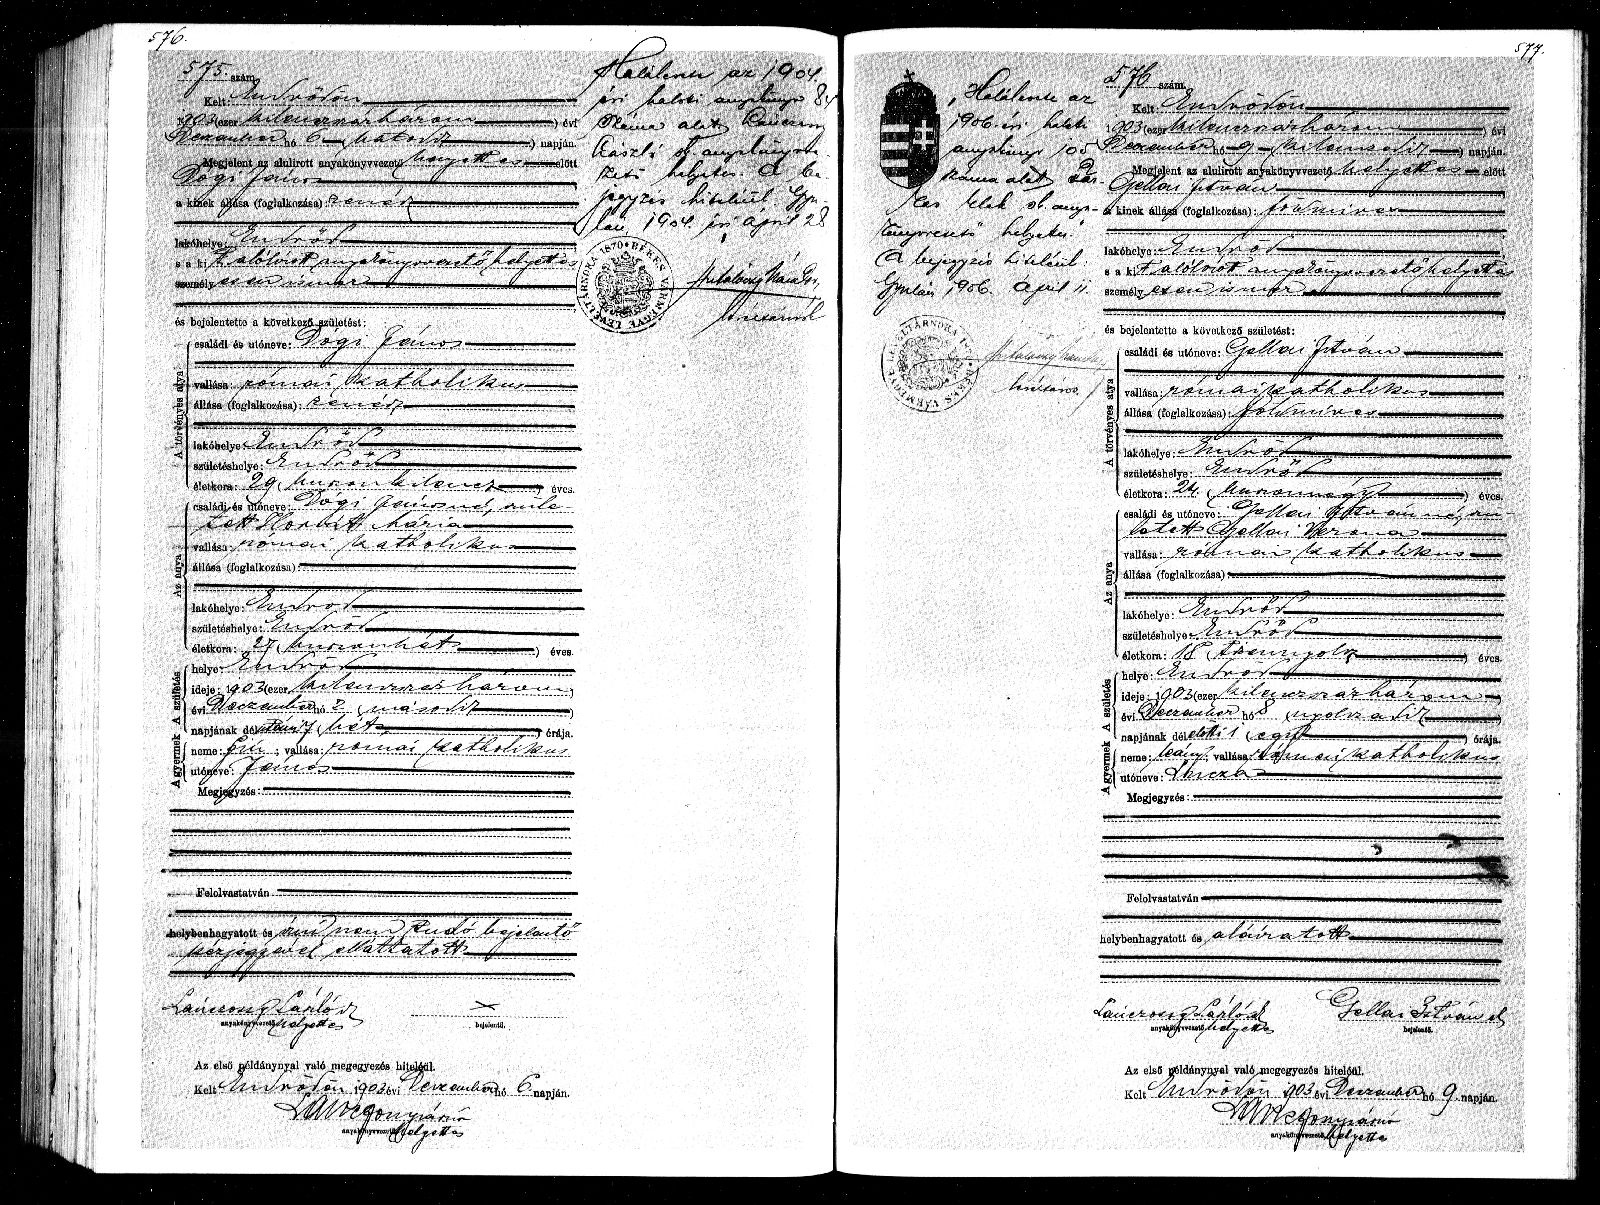 576.
575. szám.
Kelt: Endrődön
1903 (ezer kilenczszázhárom) évi
Deczember hó 6 (hatodik) napján.
Megjelent az alulirott anyakönyvvezető helyettes előtt
Dógi János
a kinek állása (foglalkozása):
lakóhelye: Endrőd
s a kit alólirott anyakönyvvezető helyettes
személyesen ismer
és bejelentette a következő születést:
A törvényes atya
családi és utóneve: Dógi János
vallása: római katholikus
állása (foglalkozása):
lakóhelye: Endrőd
születéshelye: Endrőd
életkora: 29 (huszonkilencz) éves.
Az anya
családi és utóneve: Dógi Jánosné, szüle-
tett Horvát Mária
vallása: római katholikus
állása (foglalkozása):
lakóhelye: Endrőd
születéshelye: Endrőd
életkora: 27 (huszonhét) éves.
A születés
helye: Endrőd
ideje: 1903 (ezer kilenczszázhárom)
évi Deczember hó 2 (második)
napjának dél után 7 (hét) órája.
A gyermek
neme: fiú; vallása: római katholikus
utóneve: János
Megjegyzés:
Felolvastatván
helybenhagyatott és irni nem tudó bejelentő
kézjegyével elláttatott
Lánczossy László
anyakönyvvezető helyettes
×
bejelentő.
Az első példánynyal való megegyezés hiteléül.
Kelt Endrődön, 1903 évi Deczember hó 6 napján.
anyakönyvvezető helyettes
Halálesete az 1904.
évi haleti anyakönyv 84
száma alatt Lánczossy
László s. anyakönyvve-
zető helyettes. A be-
jegyzés hiteléül. Gyu-
lán, 1904. évi április 28
BÉKÉS VÁRMEGYE LEVÉLTÁRNOKA 1870
577.
Halálesete az
1906. évi haleti
anyakönyv 105
száma alatt
s. anya-
könyvvezető helyettes.
A bejegyzés hiteléül.
Gyulán 1906. április 11.
BÉKÉS VÁRMEGYE LEVÉLTÁRNOKA
576 szám.
Kelt: Endrődön
1903 (ezer kilenczszázhárom) évi
Deczember hó 9 (kilenczedik) napján.
Megjelent az alulirott anyakönyvvezető helyettes előtt
Gellai István
a kinek állása (foglalkozása): földmives
lakóhelye: Endrőd
s a kit alólirott anyakönyvvezető helyettes
személyesen ismer
és bejelentette a következő születést:
A törvényes atya
családi és utóneve: Gellai István
vallása: római katholikus
állása (foglalkozása): földmives
lakóhelye: Endrőd
születéshelye: Endrőd
életkora: 24 (huszonnégy) éves.
Az anya
családi és utóneve: Gellai Istvánné, szü-
letett Gellai Verona
vallása: római katholikus
állása (foglalkozása):
lakóhelye: Endrőd
születéshelye: Endrőd
életkora: 18 (tizennyolcz) éves.
A születés
helye: Endrőd
ideje: 1903 (ezer kilenczszázhárom)
évi Deczember hó 8 (nyolczadik)
napjának dél előtti 1 (egy) órája.
A gyermek
neme: leány; vallása: római katholikus
utóneve: Lucza
Megjegyzés:
Felolvastatván
helybenhagyatott és aláiratott
Lánczossy László
anyakönyvvezető helyettes
Gellai István
bejelentő.
Az első példánynyal való megegyezés hiteléül.
Kelt Endrődön, 1903 évi Deczember hó 9 napján.
anyakönyvvezető helyettes